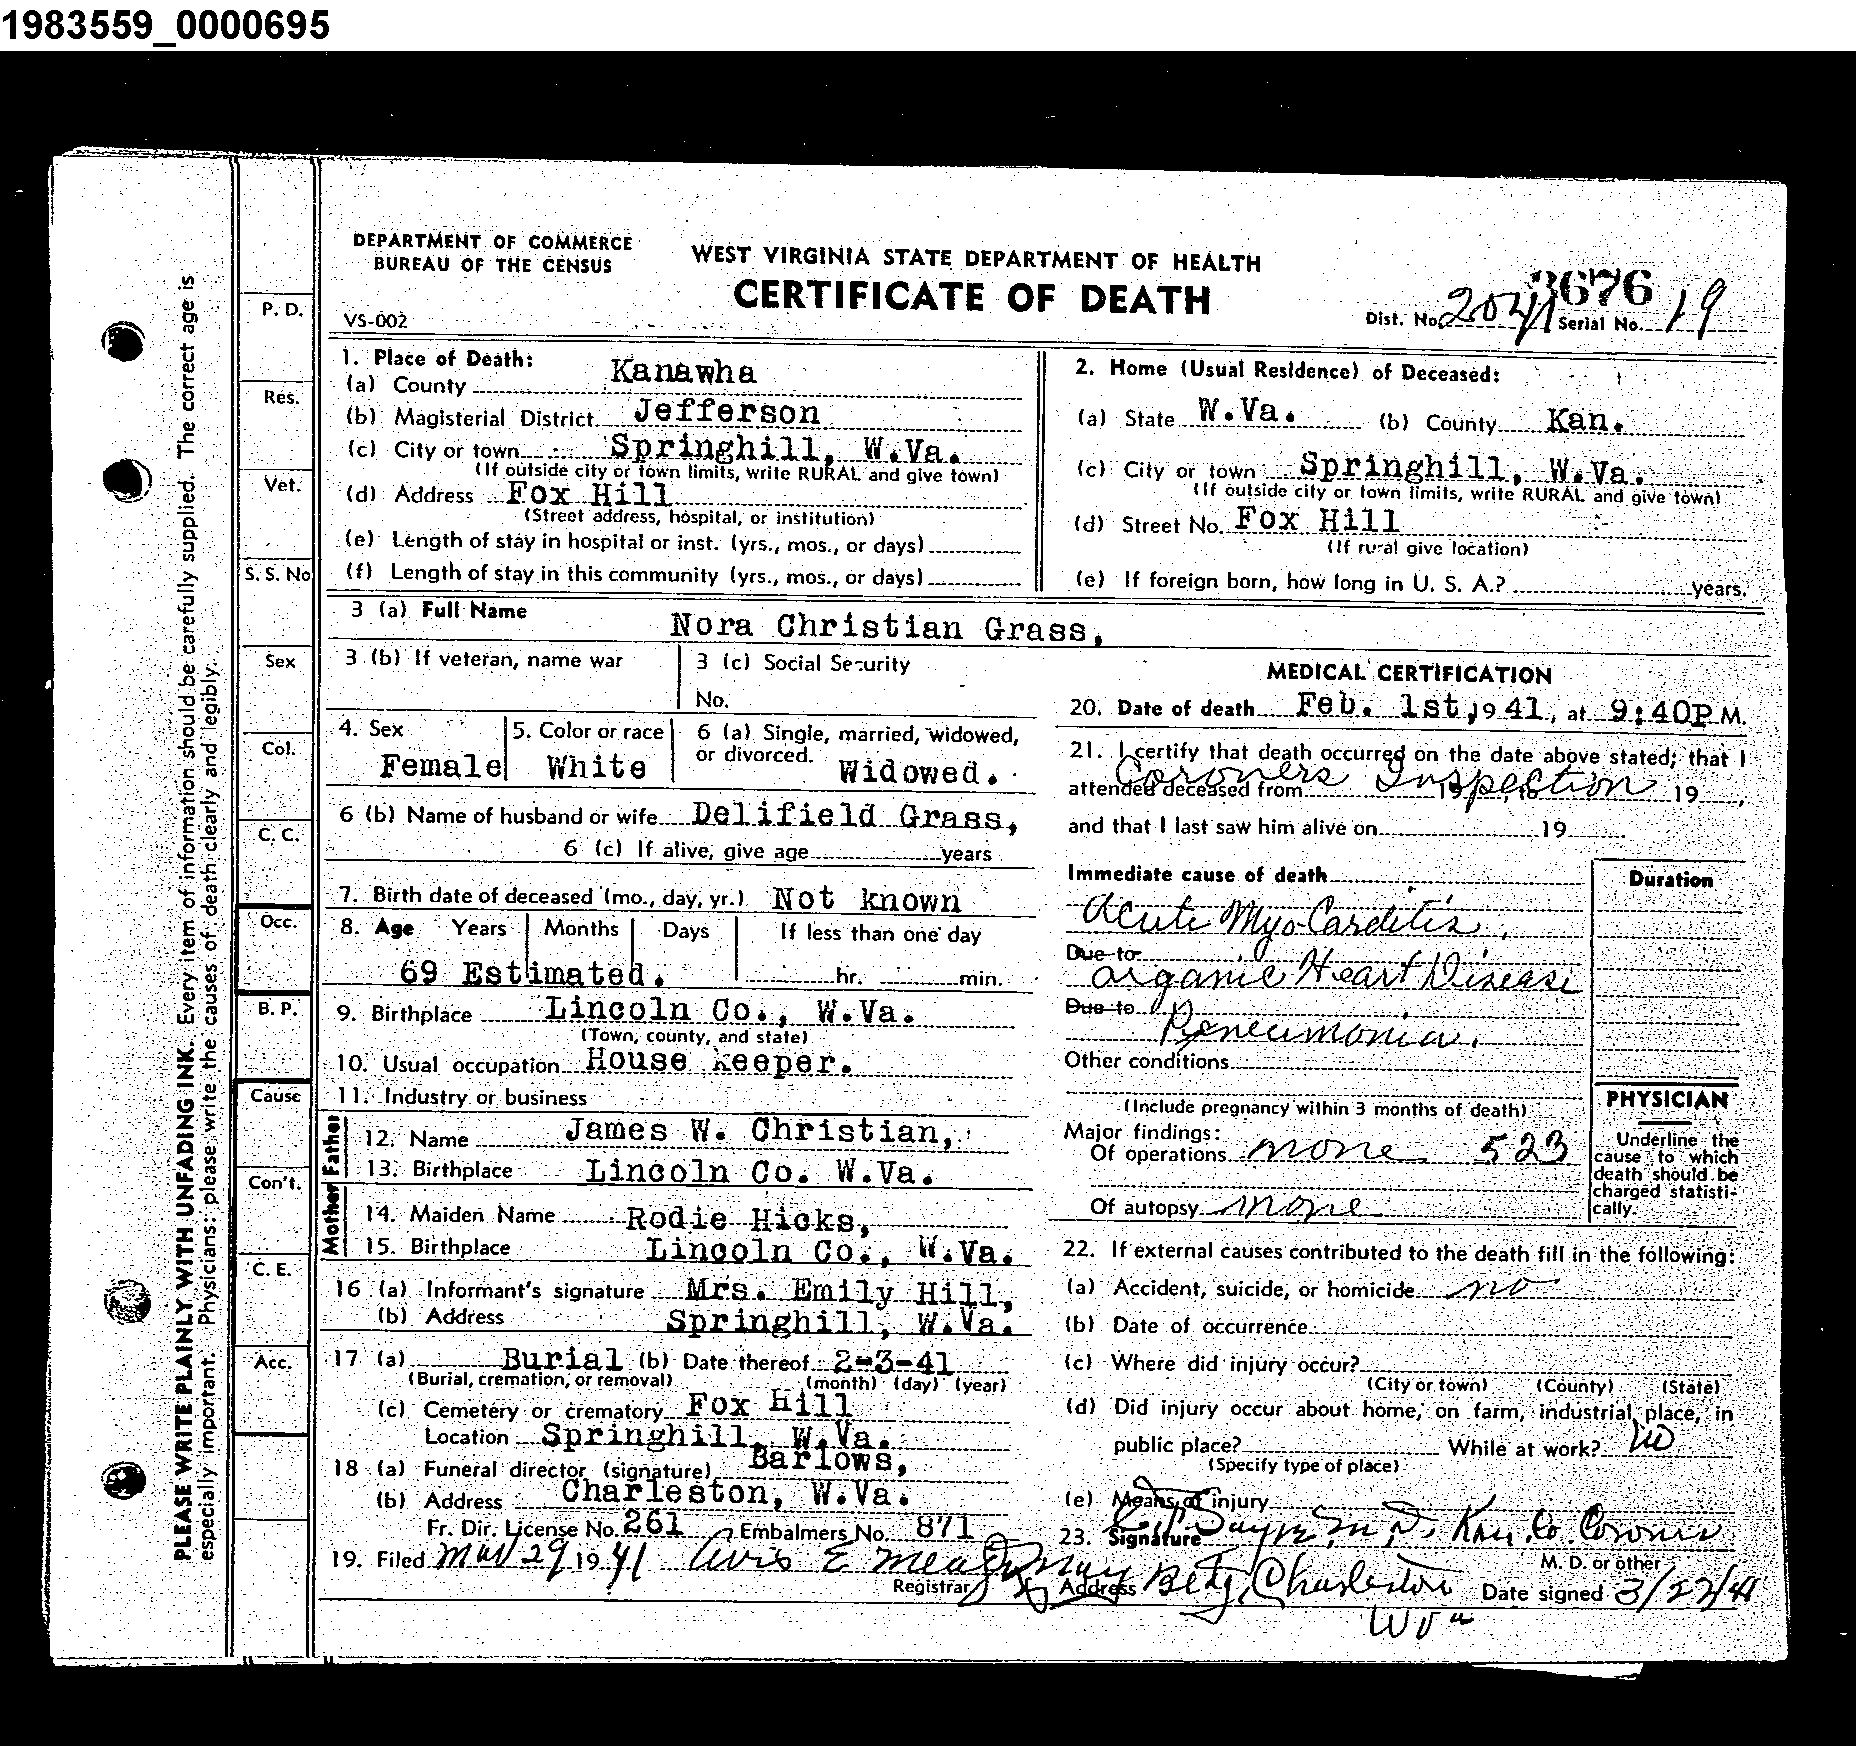 1983559_0000695
DEPARTMENT OF COMMERCE
BUREAU OF THE CENSUS
VS-002
WEST VIRGINIA STATE DEPARTMENT OF HEALTH
CERTIFICATE OF DEATH
3676
Dist. No. 2041 Serial No. 19
PLEASE WRITE PLAINLY WITH UNFADING INK. Every item of information should be carefully supplied. The correct age is
especially important. Physicians: please write the causes of death clearly and legibly.
P. D.
Res.
Vet.
S. S. No
Sex
Col.
C. C.
Occ.
B. P.
Cause
Con't.
C. E.
Acc.
1. Place of Death:
(a) County Kanawha
(b) Magisterial District Jefferson
(c) City or town Springhill, W.Va.
(If outside city or town limits, write RURAL and give town)
(d) Address Fox Hill
(Street address, hospital, or institution)
(e) Length of stay in hospital or inst. (yrs., mos., or days)
(f) Length of stay in this community (yrs., mos., or days)
2. Home (Usual Residence) of Deceased:
(a) State W.Va. (b) County Kan.
(c) City or town Springhill, W.Va.
(If outside city or town limits, write RURAL and give town)
(d) Street No. Fox Hill
(If rural give location)
(e) If foreign born, how long in U. S. A.? years.
3 (a) Full Name Nora Christian Grass,
3 (b) If veteran, name war
3 (c) Social Security
No.
4. Sex Female
5. Color or race White
6 (a) Single, married, widowed,
or divorced. Widowed.
6 (b) Name of husband or wife Delifield Grass,
6 (c) If alive, give age years
7. Birth date of deceased (mo., day, yr.) Not known
8. Age Years Months Days If less than one day
69 Estimated. hr. min.
9. Birthplace Lincoln Co., W.Va.
(Town, county, and state)
10. Usual occupation House Keeper.
11. Industry or business
Father
12. Name James W. Christian,
13. Birthplace Lincoln Co. W.Va.
Mother
14. Maiden Name Rodie Hicks,
15. Birthplace Lincoln Co., W.Va.
16 (a) Informant's signature Mrs. Emily Hill,
(b) Address Springhill, W.Va.
17 (a) Burial (b) Date thereof 2-3-41
(Burial, cremation, or removal) (month) (day) (year)
(c) Cemetery or crematory Fox Hill
Location Springhill, W.Va.
18 (a) Funeral director (signature) Barlows,
(b) Address Charleston, W.Va.
Fr. Dir. License No. 261 Embalmers No. 871
19. Filed Mar 29 1941 Avis E
Registrar
MEDICAL CERTIFICATION
20. Date of death Feb. 1st, 1941, at 9:40P M.
21. I certify that death occurred on the date above stated; that I
Coroners Inspection
attended deceased from 19 , to 19 ,
and that I last saw him alive on 19
Immediate cause of death
Duration
Acute Myo Carditis.
Due to
Organic Heart Disease
Due to
Pneumonia.
Other conditions
(Include pregnancy within 3 months of death)
Major findings:
Of operations none 523
Of autopsy none
PHYSICIAN
Underline the
cause to which
death should be
charged statisti-
cally.
22. If external causes contributed to the death fill in the following:
(a) Accident, suicide, or homicide no
(b) Date of occurrence
(c) Where did injury occur?
(City or town) (County) (State)
(d) Did injury occur about home, on farm, industrial place, in
public place? While at work? no
(Specify type of place)
(e) Means of injury
23. Signature M. D. Kan. Co. Coroner
M. D. or other
Address Charleston Date signed 3/22/41
W Va